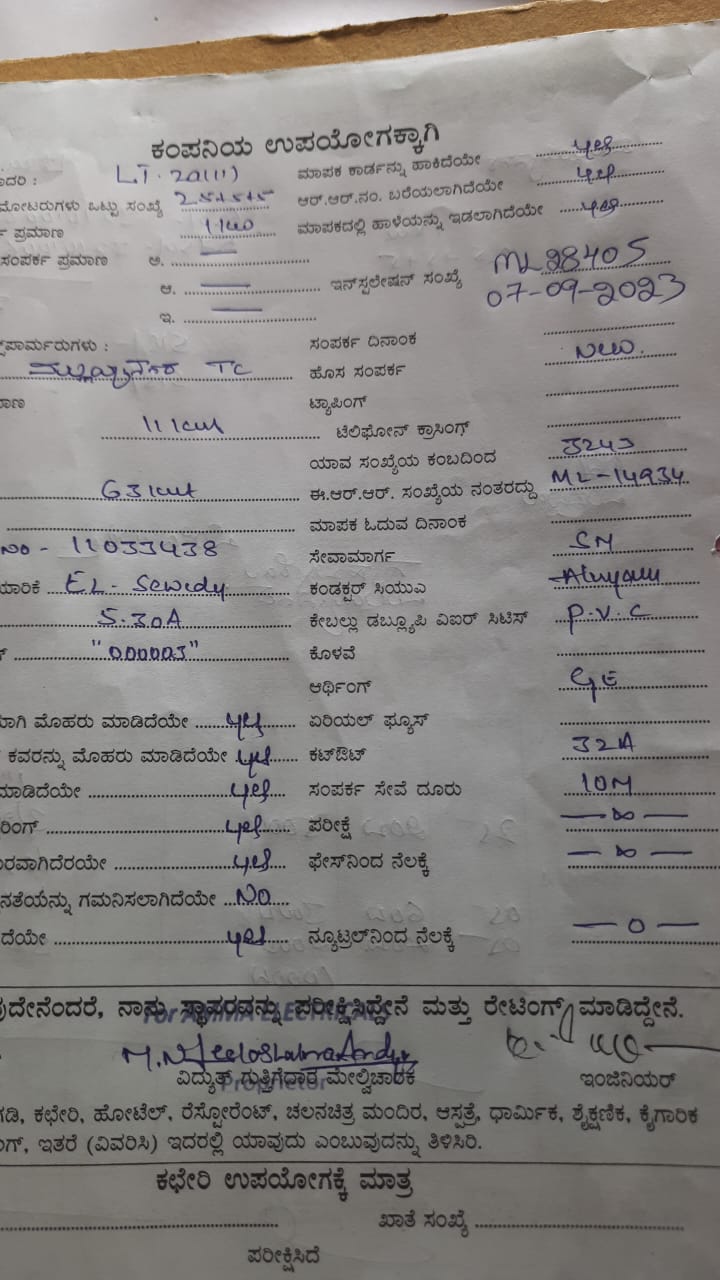 ಕಂಪನಿಯ ಉಪಯೋಗಕ್ಕಾಗಿ
ಾದರಿ : LT. 2a(11) ಮಾಪಕ ಕಾರ್ಡನ್ನು ಹಾಕಿದೆಯೇ yes
ಮೋಟರುಗಳು ಒಟ್ಟು ಸಂಖ್ಯೆ ಆರ್.ಆರ್.ನಂ. ಬರೆಯಲಾಗಿದೆಯೇ yes
ಪ್ರಮಾಣ ಮಾಪಕದಲ್ಲಿ ಹಾಳೆಯನ್ನು ಇಡಲಾಗಿದೆಯೇ yes
ಸಂಪರ್ಕ ಪ್ರಮಾಣ ಅ.
ಆ. ಇನ್‌ಸ್ಟಲೇಷನ್ ಸಂಖ್ಯೆ ML28405
07-09-2023
ಇ.
ಪಾರ್ಮರುಗಳು : ಸಂಪರ್ಕ ದಿನಾಂಕ
TC ಹೊಸ ಸಂಪರ್ಕ New.
ಮಾಣ ಟ್ಯಾಪಿಂಗ್
11 kW ಟೆಲಿಫೋನ್ ಕ್ರಾಸಿಂಗ್
ಯಾವ ಸಂಖ್ಯೆಯ ಕಂಬದಿಂದ
63 kW ಈ.ಆರ್.ಆರ್. ಸಂಖ್ಯೆಯ ನಂತರದ್ದು ML-14934
ಮಾಪಕ ಓದುವ ದಿನಾಂಕ
No - 11033438 ಸೇವಾಮಾರ್ಗ SM
ಯಾರಿಕೆ EL- Sewedy ಕಂಡಕ್ಟರ್ ಸಿಯುಎ
5.30A ಕೇಬಲ್ಲು ಡಬ್ಲ್ಯೂಪಿ ವಿಐರ್ ಸಿಟಿಸ್ P.V.C
"000003" ಕೊಳವೆ
ಆರ್ಥಿಂಗ್ GE
ಾಗಿ ಮೊಹರು ಮಾಡಿದೆಯೇ yes ಏರಿಯಲ್ ಫ್ಯೂಸ್
ಕವರನ್ನು ಮೊಹರು ಮಾಡಿದೆಯೇ yes ಕಟ್‌ಔಟ್ 32A
ಮಾಡಿದೆಯೇ yes ಸಂಪರ್ಕ ಸೇವೆ ದೂರು 10M
ರಿಂಗ್ yes ಪರೀಕ್ಷೆ — ∞ —
ಾರವಾಗಿದೆರಯೇ yes ಫೇಸ್‌ನಿಂದ ನೆಲಕ್ಕೆ — ∞ —
ನತೆಯನ್ನು ಗಮನಿಸಲಾಗಿದೆಯೇ No
ದೆಯೇ yes ನ್ಯೂಟ್ರಲ್‌ನಿಂದ ನೆಲಕ್ಕೆ — 0 —
ುದೇನೆಂದರೆ, ನಾನು ಸ್ಥಾವರವನ್ನು ಪರೀಕ್ಷಿಸಿದ್ದೇನೆ ಮತ್ತು ರೇಟಿಂಗ್ ಮಾಡಿದ್ದೇನೆ.
For ELECTRICAL
ವಿದ್ಯುತ್ ಗುತ್ತಿಗೆದಾರ ಮೇಲ್ವಿಚಾರಕ ಇಂಜಿನಿಯರ್
Proprietor
ಗಡಿ, ಕಛೇರಿ, ಹೋಟೆಲ್, ರೆಸ್ಟೋರೆಂಟ್, ಚಲನಚಿತ್ರ ಮಂದಿರ, ಆಸ್ಪತ್ರೆ, ಧಾರ್ಮಿಕ, ಶೈಕ್ಷಣಿಕ, ಕೈಗಾರಿಕ
ಗ್, ಇತರೆ (ವಿವರಿಸಿ) ಇದರಲ್ಲಿ ಯಾವುದು ಎಂಬುವುದನ್ನು ತಿಳಿಸಿರಿ.
ಕಛೇರಿ ಉಪಯೋಗಕ್ಕೆ ಮಾತ್ರ
ಖಾತೆ ಸಂಖ್ಯೆ
ಪರೀಕ್ಷಿಸಿದೆ